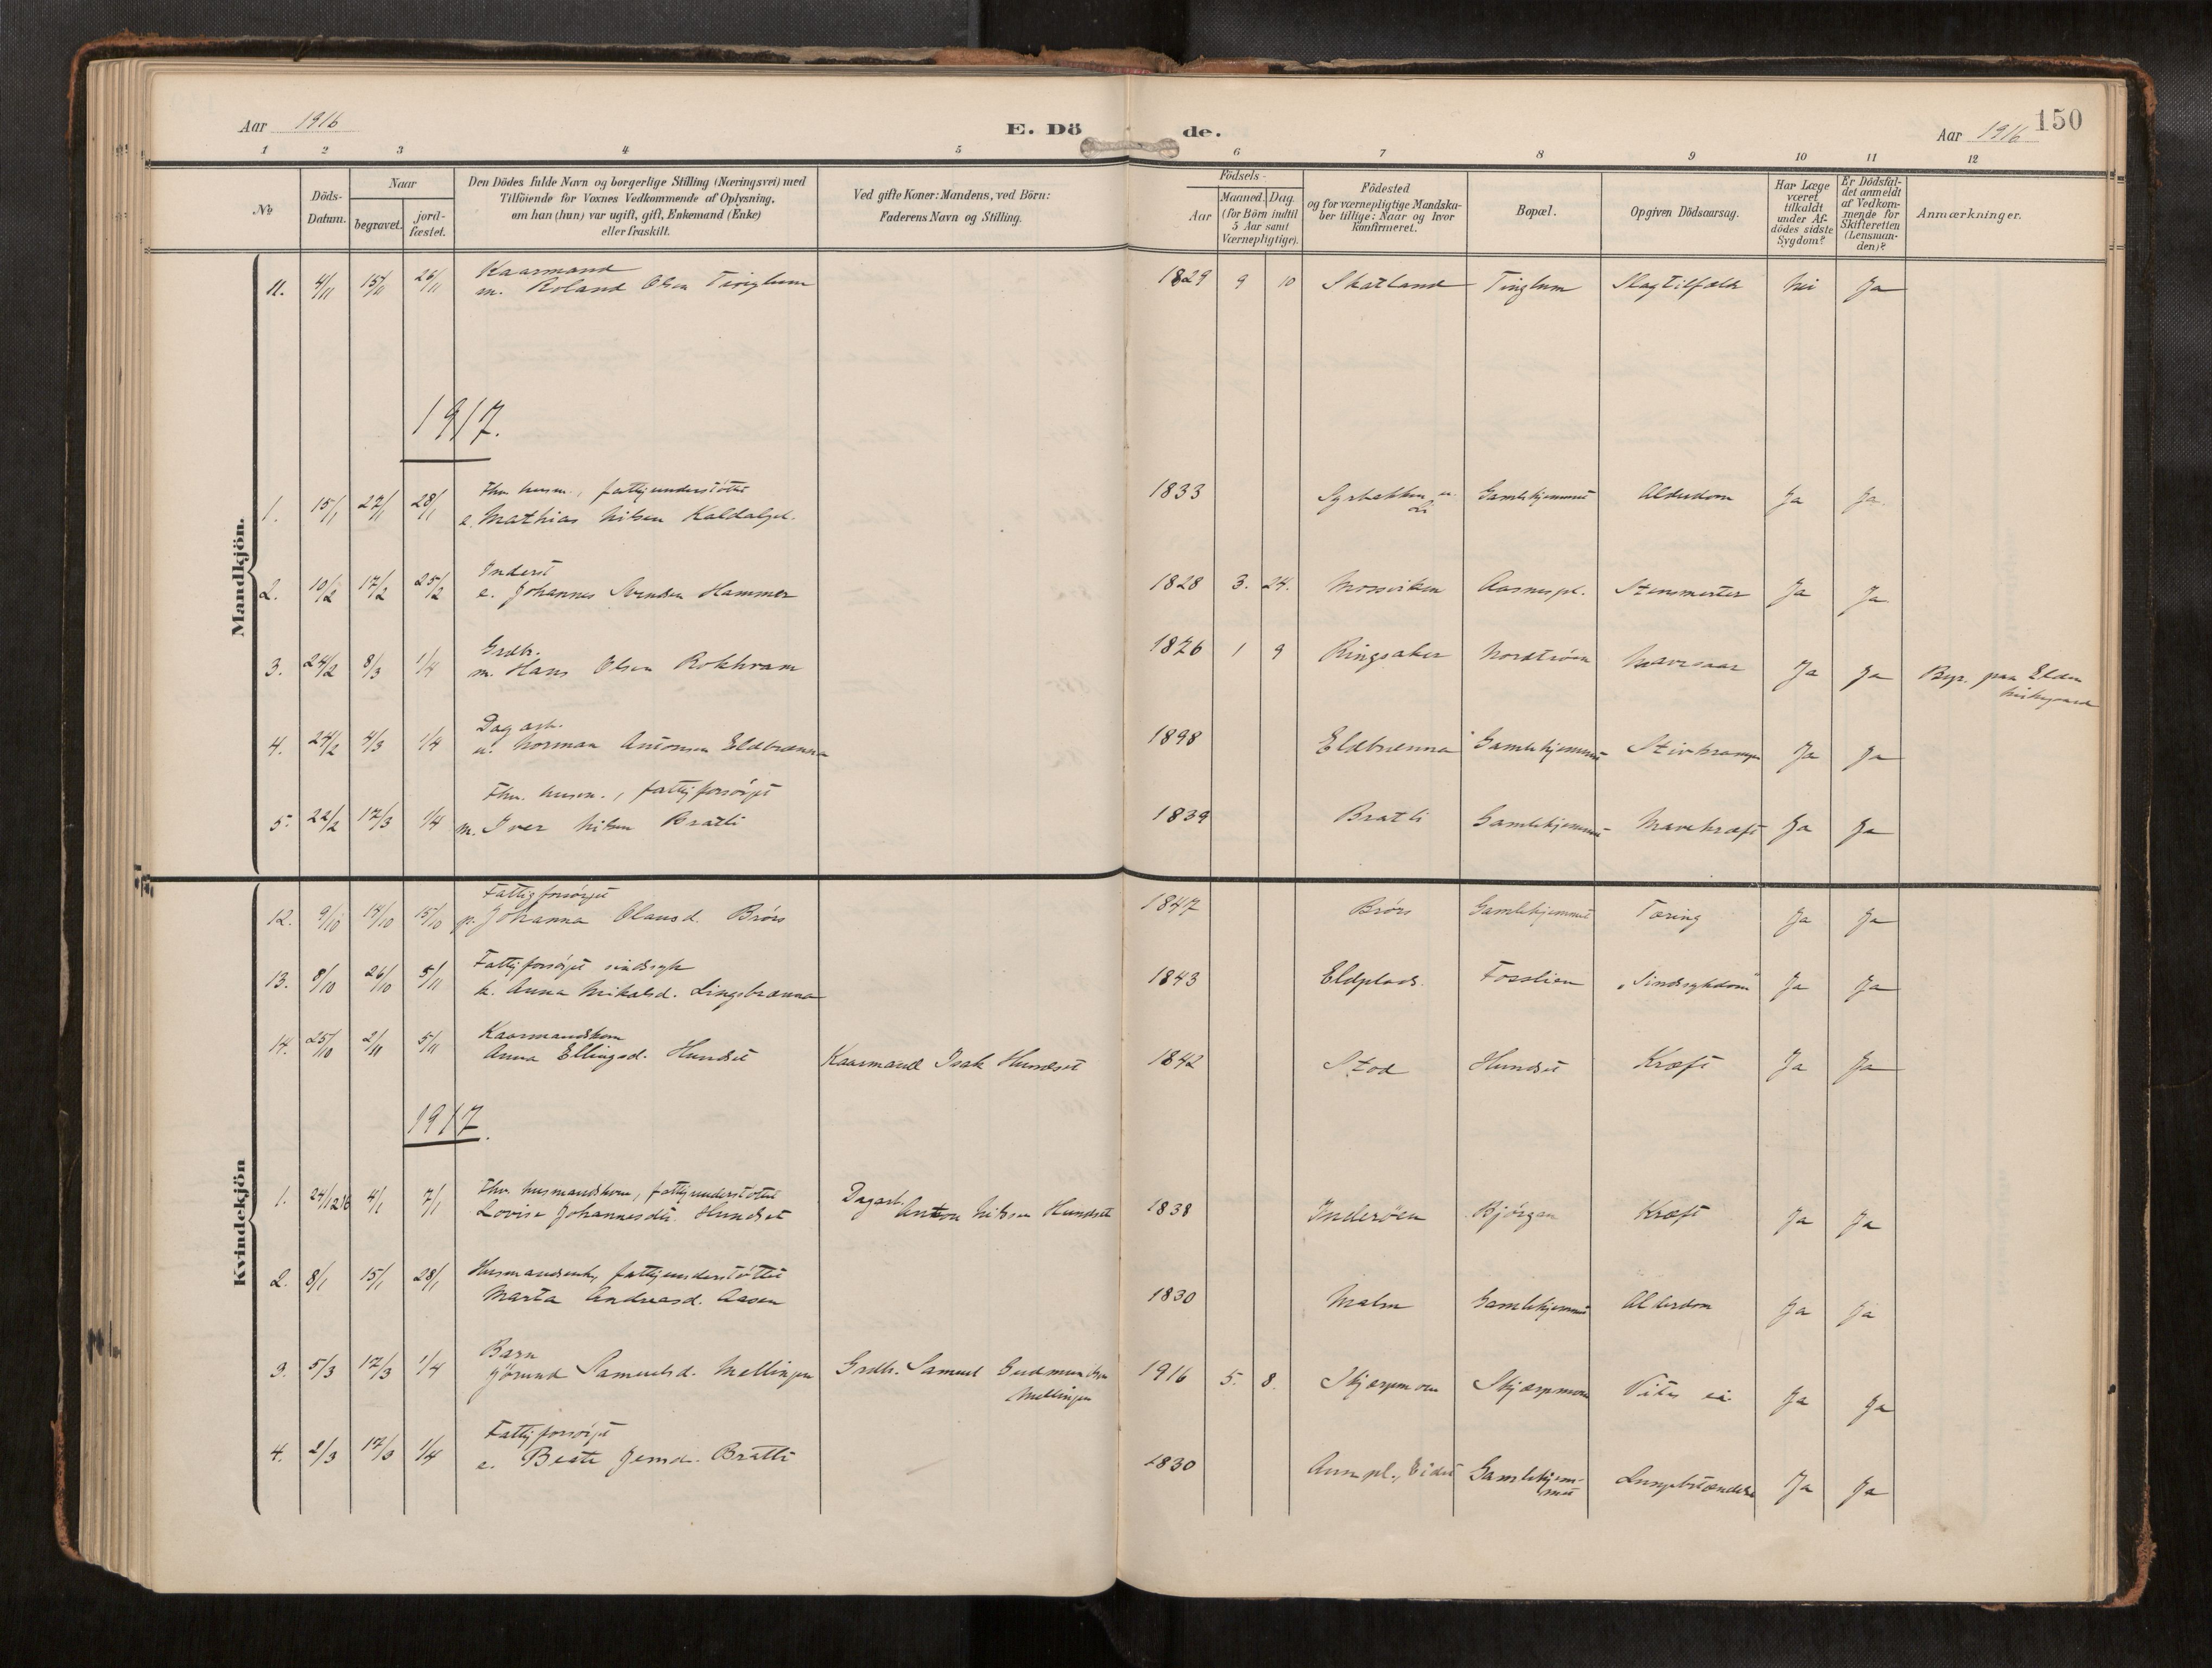 Aar 1916
E. Dö de.
Aar 1916
150
1 2 3 4 5 6 7 8 9 10 11 12
No
Döds-
Datum.
Naar
begravet.
jord-
fæstet.
Den Dödes fulde Navn og borgerlige Stilling (Næringsvei) med
Tilföiende for Voxnes Vedkommende af Oplysning,
om han (hun) var ugift, gift, Enkemand (Enke)
eller fraskilt.
Ved gifte Koner: Mandens, ved Börn:
Faderens Navn og Stilling.
Födsels-
Aar
Maaned.
Dag.
(for Börn indtil
5 Aar samt
Værnepligtige).
Födested
og for værnepligtige Mandska-
ber tillige: Naar og hvor
konfirmeret.
Bopæl.
Opgiven Dödsaarsag.
Har Læge
været
tilkaldt
under Af-
dödes sidste
Sygdom?
Er Dödsfal-
det anmeldt
af Vedkom-
mende for
Skifteretten
(Lensman-
den)?
Anmærkninger.
Mandkjön.
Kaarmand
11. 4/11 15/11 26/11 m. Roland Olsen Tinglum 1829 9 10 Skatland Tinglum Slagtilfælde Nei Ja
1917.
Fhv. husm., fattigunderstöttet
1. 15/1 27/1 28/1 e. Mathias Nilsen Kaldalspl. 1833 Gamlehjemmet Alderdom Ja Ja
Inderst
2. 10/2 17/2 25/2 e. Johannes Svendsen Hammer 1828 3. 24. Mosviken Aasnespl. Stensmerter Ja Ja
Grdbr.
3. 24/2 8/3 1/4 m. Hans Olsen Rokhvam 1826 1 9 Ringsaker Nordtröen Mavesaar Ja Ja Begr. paa Elden
kirkegaard
Dagarb.
4. 24/2 4/3 1/4 u. Norman Antonsen Eldbrænna 1898 Eldbrænna Gamlehjemmet Stivkrampe Ja Ja
Fhv. husm., fattigforsörget
5. 22/2 17/3 1/4 m. Iver Nilsen Bratli 1839 Bratli Gamlehjemmet Mavekræft Ja Ja
Kvindekjön
Fattigforsörget
12. 9/10 14/10 15/10 p. Johanna Olausd. Brörs 1847 Brörs Gamlehjemmet Tæring Ja Ja
Fattigforsörget sindssyk
13. 8/10 26/10 5/11 k. Anna Mikalsd. Lingsbrænna 1843 Eldplads. Fosslien "Sindssykdom" Ja Ja
Kaarmandskone
14. 25/10 2/11 5/11 Anna Ellingsd. Hundset Kaarmand Isak Hundset 1842 Stod Hundset Kræft Ja Ja
1917.
Fhv. husmandskone, fattigunderstöttet
1. 24/12 16 4/1 7/1 Lovise Johannesdt. Hundset Dagarb. Anton Nilsen Hundset 1838 Inderöen Björgan Kræft Ja Ja
Husmandsenke, fattigunderstöttet
2. 8/1 15/1 28/1 Marta Andreasd. Aasen 1830 Malm Gamlehjemmet Alderdom Ja Ja
Barn
3. 5/3 17/3 1/4 Jörund Samuelsd. Mellingen Grdbr. Samuel Gudmundsen
Mellingen 1916 5. 8. Skjærpmoen Skjærpmoen Vites ei Ja Ja
Fattigforsörget
4. 2/3 17/3 1/4 e. Beate Jensd. Bratli 1830 Gamlehjem-
met Lungebetændelse Ja Ja